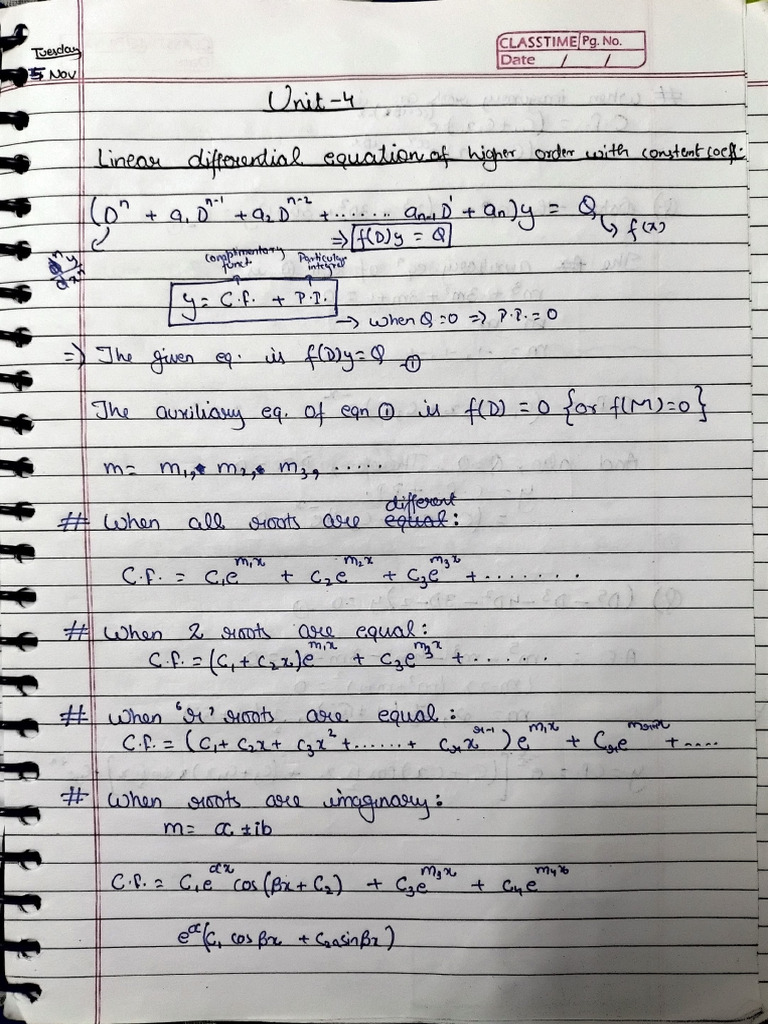 Tuesday
5 Nov
CLASSTIME Pg. No.
Date / /
Unit-4
Linear differential equation of higher order with constent coeff:
(Dⁿ + a₁ Dⁿ⁻¹ + a₂ Dⁿ⁻² + ........ aₙ₋₁D' + aₙ)y = Q
↳ f(x)
⇒ f(D)y = Q
dⁿy/dxⁿ
complimentary funct.
Particular integral
y = C.f. + P.I.
→ when Q=0 ⇒ P.I.=0
⇒ The given eq. is f(D)y=Q -①
The auxiliary eq. of eqn ① is f(D) = 0 {or f(M)=0}
m= m₁, m₂, m₃, .....
# When all roots are different equal:
C.f. = C₁e^m₁x + C₂e^m₂x + C₃e^m₃x + .......
# When 2 roots are equal:
C.f. = (C₁ + C₂x)e^m₁x + C₃e^m₃x + ......
# When 'r' roots are equal:
C.f. = (C₁ + C₂x + C₃x² + ...... + Cᵣx^r-1) e^m₁x + + ....
# When roots are imaginary:
m= α ± ib
C.f. = C₁e^αx cos(βx + C₂) + C₃e^m₃x + C₄e^m₄x
e^α(C₁ cos βx + C₂ sin βx)